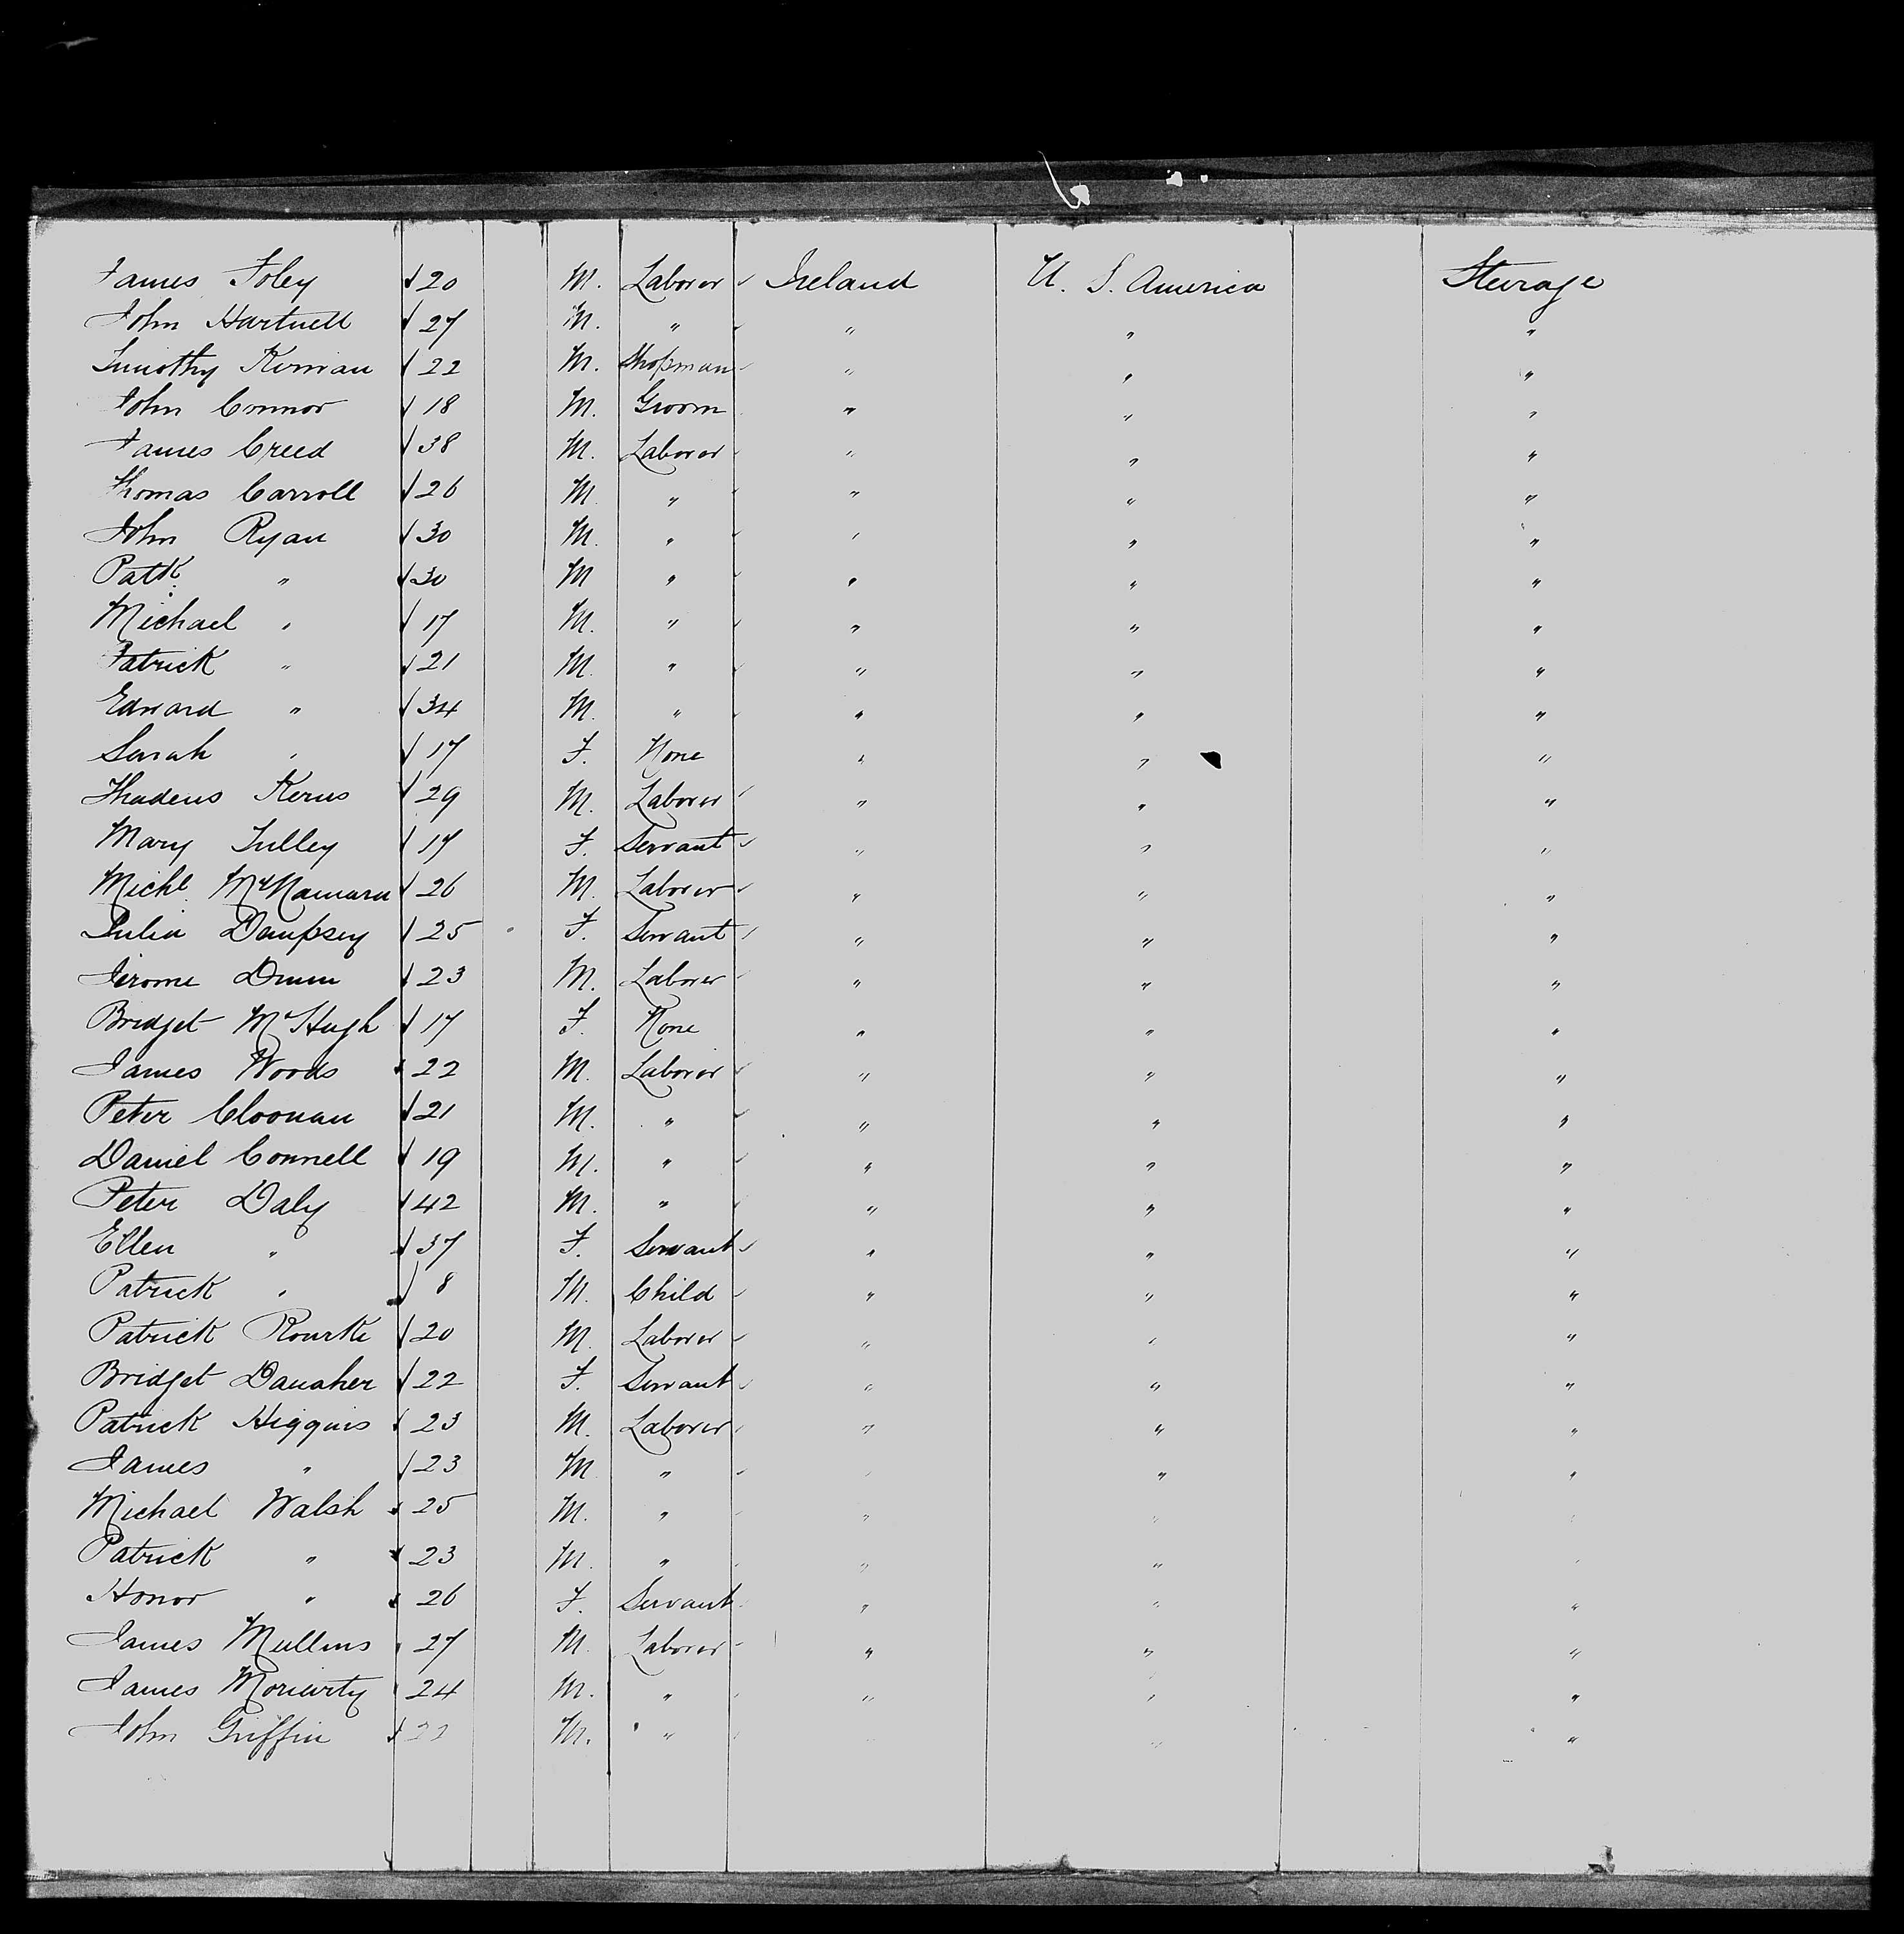 James Foley 20 M. Laborer Ireland U. S. America Steerage
John Hartnell 27 M. " " " "
Timothy Kirwan 22 M. Shopman " " "
John Connor 18 M. Groom " " "
James Creed 38 M. Laborer " " "
Thomas Carroll 26 M. " " " "
John Ryan 30 M. " " " "
Patk " 30 M " " " "
Michael " 17 M. " " " "
Patrick " 21 M. " " " "
Edward " 34 M. " " " "
Sarah " 17 F. None " " "
Thadeus Kerus 29 M. Laborer " " "
Mary Tulley 17 F. Servant " " "
Michl. McNamara 26 M. Laborer " " "
Julia Dempsey 25 F. Servant " " "
Jerome Drum 23 M. Laborer " " "
Bridget McHugh 17 F. None " " "
James Woods 22 M. Laborer " " "
Peter Cloonan 21 M. " " " "
Daniel Connell 19 M. " " " "
Peter Daly 42 M. " " " "
Ellen " 37 F. Servant " " "
Patrick " 8 M. Child " " "
Patrick Rourke 20 M. Laborer " " "
Bridget Danaher 22 F. Servant " " "
Patrick Higgins 23 M. Laborer " " "
James " 23 M " " " "
Michael Walsh 25 M. " " " "
Patrick " 23 M. " " " "
Honor " 26 F. Servant " " "
James Mullins 27 M. Laborer " " "
James Moriarty 24 M. " " " "
John Griffin 22 M. " " " "